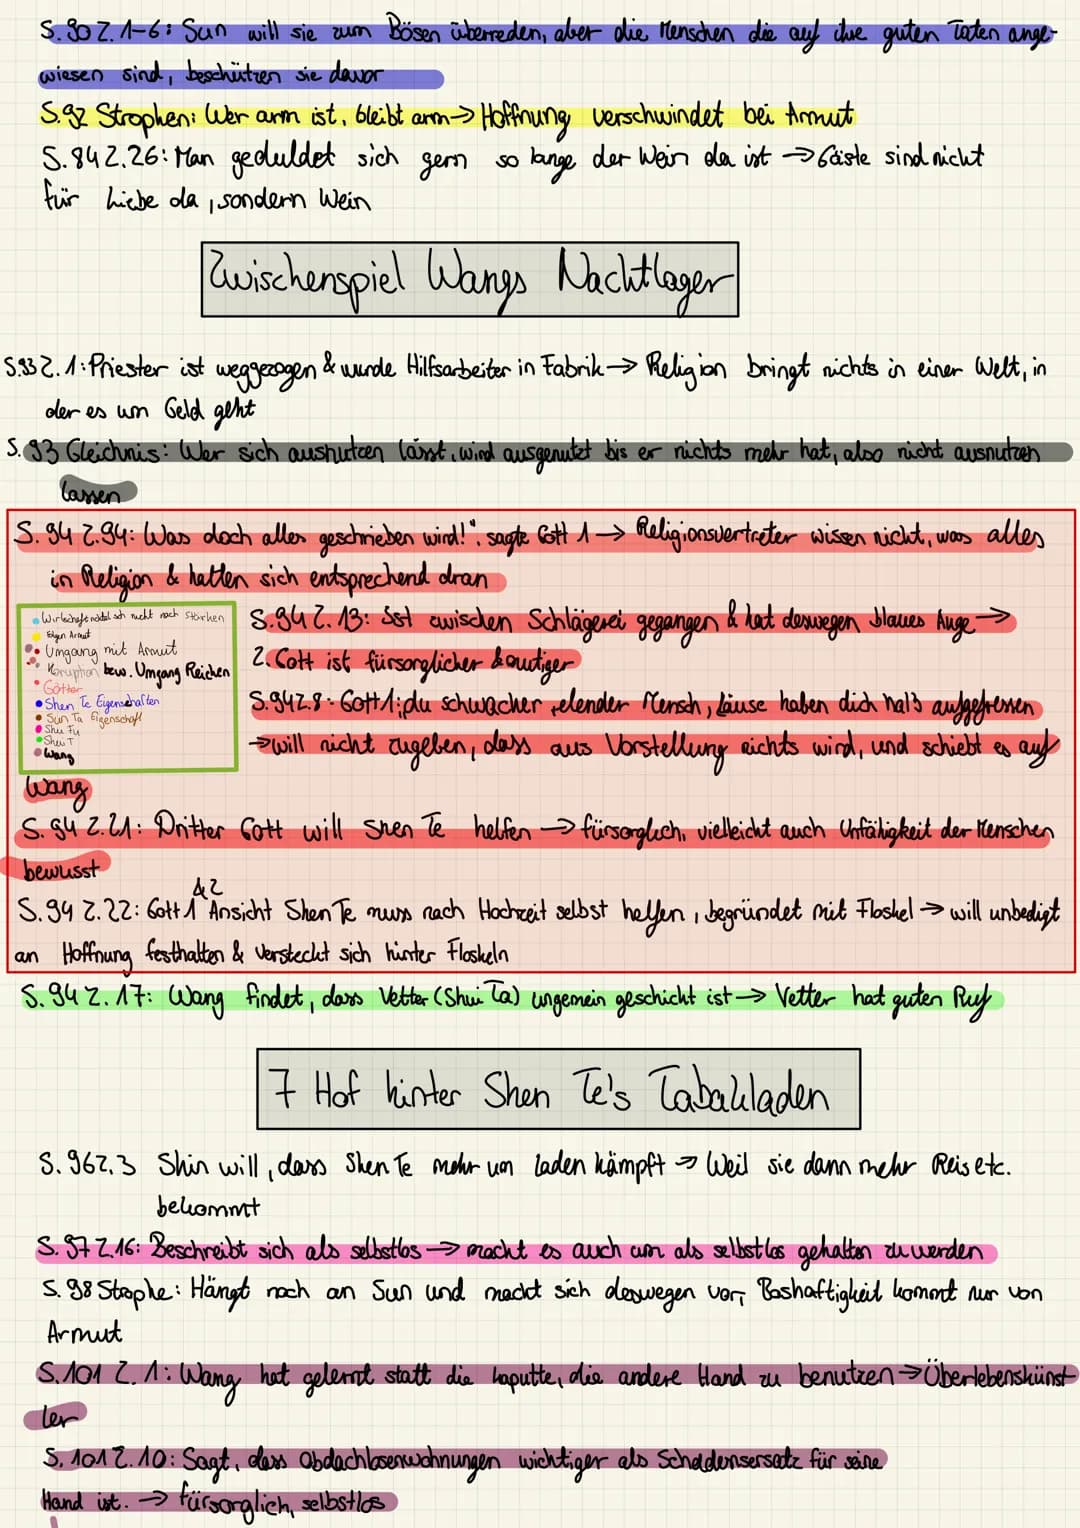 S. 90 Z. 1-6: Sun will sie zum Bösen überreden, aber die Menschen die auf ihre guten Taten ange-
wiesen sind, beschützen sie davor
S. 92 Strophen: Wer arm ist, bleibt arm → Hoffnung verschwindet bei Armut
S. 84 Z. 26: Man geduldet sich gern so lange der Wein da ist → Gäste sind nicht
für Liebe da, sondern Wein
Zwischenspiel Wangs Nachtlager
S. 93 Z. 1: Priester ist weggezogen & wurde Hilfsarbeiter in Fabrik → Religion bringt nichts in einer Welt, in
der es um Geld geht
S. 93 Gleichnis: Wer sich ausnutzen lässt, wird ausgenutzt bis er nichts mehr hat, also nicht ausnutzen
lassen
S. 94 Z. 94: Was doch alles geschrieben wird!", sagte Gott 1 → Religionsvertreter wissen nicht, was alles
in Religion & halten sich entsprechend dran
Wirtschaft
Eigen Armut
Umgang mit Armut
Koruption bzw. Umgang Reichen
Götter
Shen Te Eigenschaften
Sun Ta Eigenschaft
Shu Fu
Shui T
Wang
S. 94 Z. 13: Ist zwischen Schlägerei gegangen & hat deswegen blaues Auge →
2. Gott ist fürsorglicher & mutiger
S. 94 Z. 8: Gott 1: du schwacher, elender Mensch, Läuse haben dich halb aufgefressen
→ will nicht zugeben, dass aus Vorstellung nichts wird, und schiebt es auf
Wang
S. 94 Z. 21: Dritter Gott will Shen Te helfen → fürsorglich, vielleicht auch Unfähigkeit der Menschen
bewusst
& 2
S. 94 Z. 22: Gott 1 Ansicht Shen Te muss nach Hochzeit selbst helfen, begründet mit Floskel → will unbedigt
an Hoffnung festhalten & versteckt sich hinter Floskeln
S. 94 Z. 17: Wang findet, dass Vetter (Shui Ta) ungemein geschickt ist → Vetter hat guten Ruf
7 Hof hinter Shen Te's Tabakladen
S. 96 Z. 3 Shin will, dass Shen Te mehr um Laden kämpft → Weil sie dann mehr Reis etc.
bekommt
S. 97 Z. 16: Beschreibt sich als selbstlos → macht es auch um als selbstlos gehalten zu werden
S. 98 Stophe: Hängt noch an Sun und macht sich deswegen vor, Boshaftigkeit kommt nur von
Armut
S. 101 Z. 1: Wang hat gelernt statt die kaputte, die andere Hand zu benutzen → Überlebenskünst
ler
S. 101 Z. 10: Sagt, dass Obdachlosenwohnungen wichtiger als Schadensersatz für seine
Hand ist. → fürsorglich, selbstlos